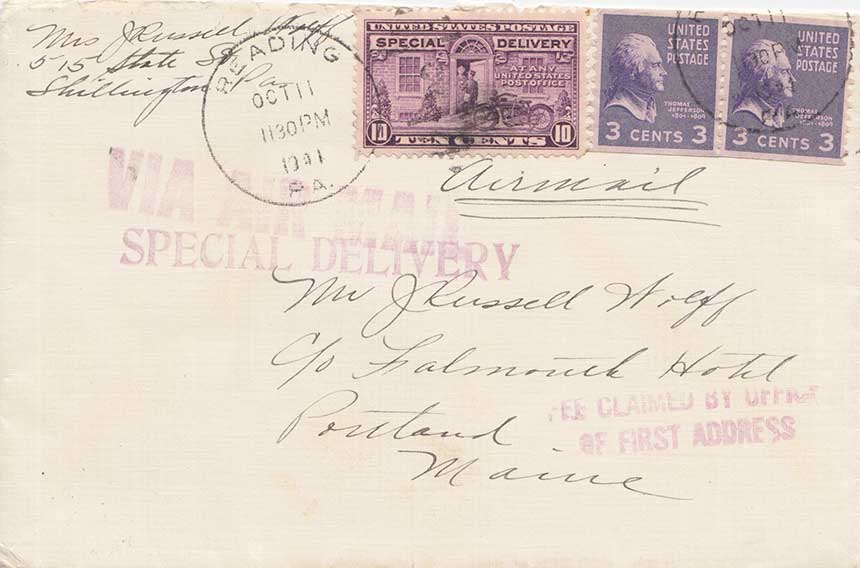 Mrs J Russell Wolff
515 State St
Shillington Pa
READING
OCT 11
1130 PM
1941
PA.
UNITED STATES POSTAGE
SPECIAL DELIVERY
AT ANY
UNITED STATES
POST OFFICE
10 TEN CENTS 10
UNITED
STATES
POSTAGE
THOMAS
JEFFERSON
1801-1809
3 CENTS 3
OCT 11
UNITED
STATES
POSTAGE
THOMAS
JEFFERSON
1801-1809
3 CENTS 3
Airmail
VIA AIR MAIL
SPECIAL DELIVERY
Mr J Russell Wolff
c/o Falmouth Hotel
Portland
Maine
FEE CLAIMED BY OFFICE
OF FIRST ADDRESS